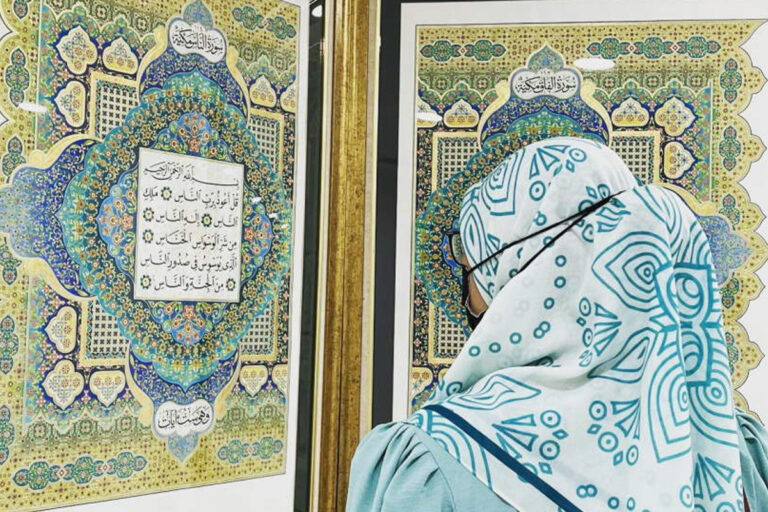 سورة الناس مكية
بسم الله الرحمن الرحيم
قل أعوذ برب الناس ملك
الناس إله الناس
من شر الوسواس الخناس
الذي يوسوس في صدور الناس
من الجنة والناس
وهي ست آيات
سورة الفلق مكية